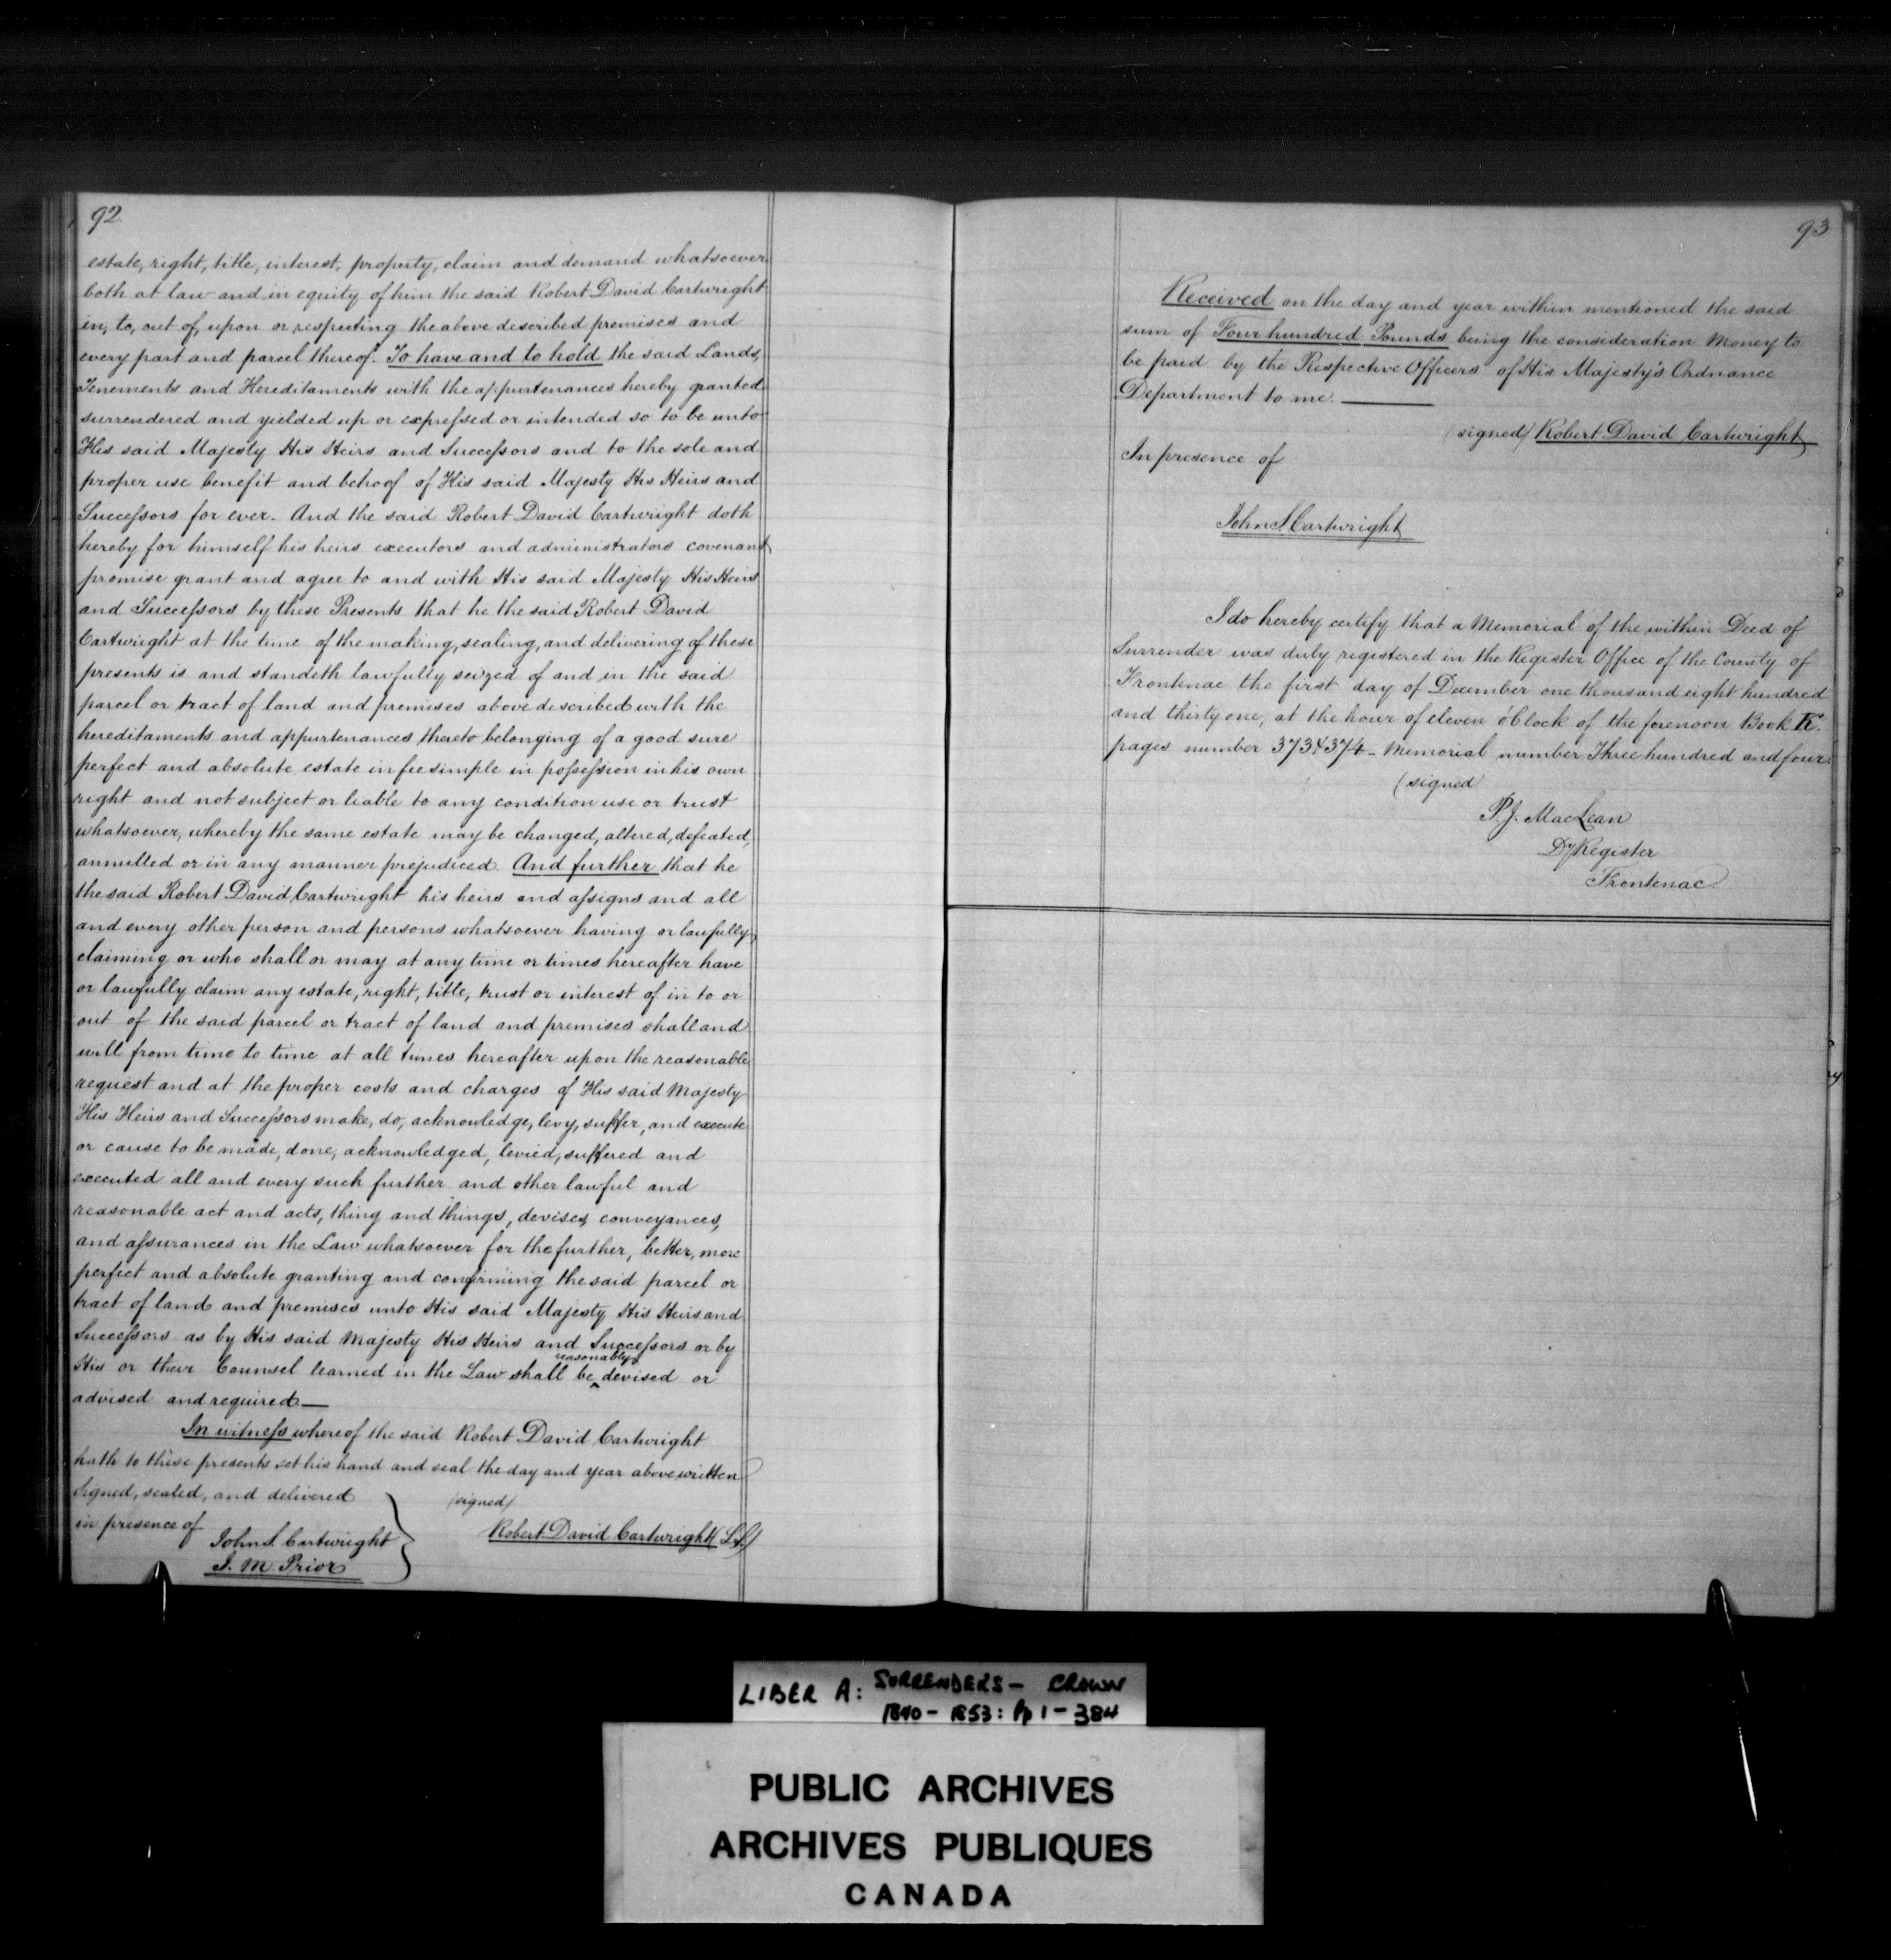 92
estate, right, title, interest, property, claim and demand whatsoever
both at law and in equity of him the said Robert David Cartwright
in, to, out of, upon or respecting the above described premises and
every part and parcel thereof. To have and to hold the said Lands,
Tenements and Hereditaments with the appurtenances hereby granted
surrendered and yielded up or expressed or intended so to be unto
His said Majesty His Heirs and Successors and to the sole and
proper use benefit and behoof of His said Majesty His Heirs and
Successors for ever. And the said Robert David Cartwright doth
hereby for himself his heirs executors and administrators covenant
promise grant and agree to and with His said Majesty His Heirs
and Successors by these Presents that he the said Robert David
Cartwright at the time of the making, sealing, and delivering of these
presents is and standeth lawfully seized of and in the said
parcel or tract of land and premises above described with the
hereditaments and appurtenances thereto belonging of a good sure
perfect and absolute estate in fee simple in possession in his own
right and not subject or liable to any condition use or trust
whatsoever, whereby the same estate may be changed, altered, defeated,
annulled or in any manner prejudiced. And further that he
the said Robert David Cartwright his heirs and assigns and all
and every other person and persons whatsoever having or lawfully
claiming or who shall or may at any time or times hereafter have
or lawfully claim any estate, right, title, trust or interest of in to or
out of the said parcel or tract of land and premises shall and
will from time to time at all times hereafter upon the reasonable
request and at the proper costs and charges of His said Majesty
His Heirs and Successors make, do, acknowledge, levy, suffer, and execute
or cause to be made, done, acknowledged, levied, suffered and
executed all and every such further and other lawful and
reasonable act and acts, thing and things, devises, conveyances,
and assurances in the Law whatsoever for the further, better, more
perfect and absolute granting and confirming the said parcel or
tract of land and premises unto His said Majesty His Heirs and
Successors as by His said Majesty His Heirs and Successors or by
His or their Counsel learned in the Law shall be reasonably devised or
advised and required —
In witness whereof the said Robert David Cartwright
hath to these presents set his hand and seal the day and year above written
Signed, sealed, and delivered (signed)
in presence of
John S. Cartwright Robert David Cartwright (L.S.)
S. M. Prior
93
Received on the day and year within mentioned the said
sum of Four hundred Pounds being the consideration Money to
be paid by the Respective Officers of His Majesty's Ordnance
Department to me. —
(signed) Robert David Cartwright
In presence of
John S. Cartwright
I do hereby certify that a Memorial of the within Deed of
Surrender was duly registered in the Register Office of the County of
Frontenac the first day of December one thousand eight hundred
and thirty one, at the hour of eleven o'Clock of the forenoon Book K.
pages number 373 & 374 – Memorial number Three hundred and four.
(signed
P. J. MacLean
Dy Register
Frontenac.
LIBER A: SURRENDERS – CROWN
1840 – 1853: Pp 1 – 384
PUBLIC ARCHIVES
ARCHIVES PUBLIQUES
CANADA